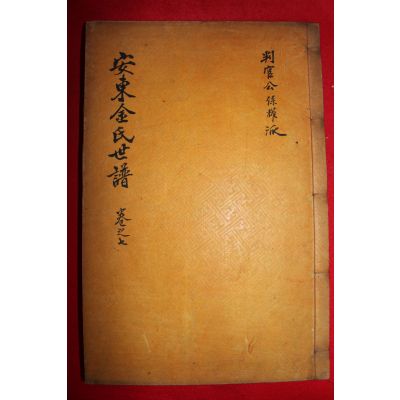 判官公係權派
安東金氏世譜
卷之七